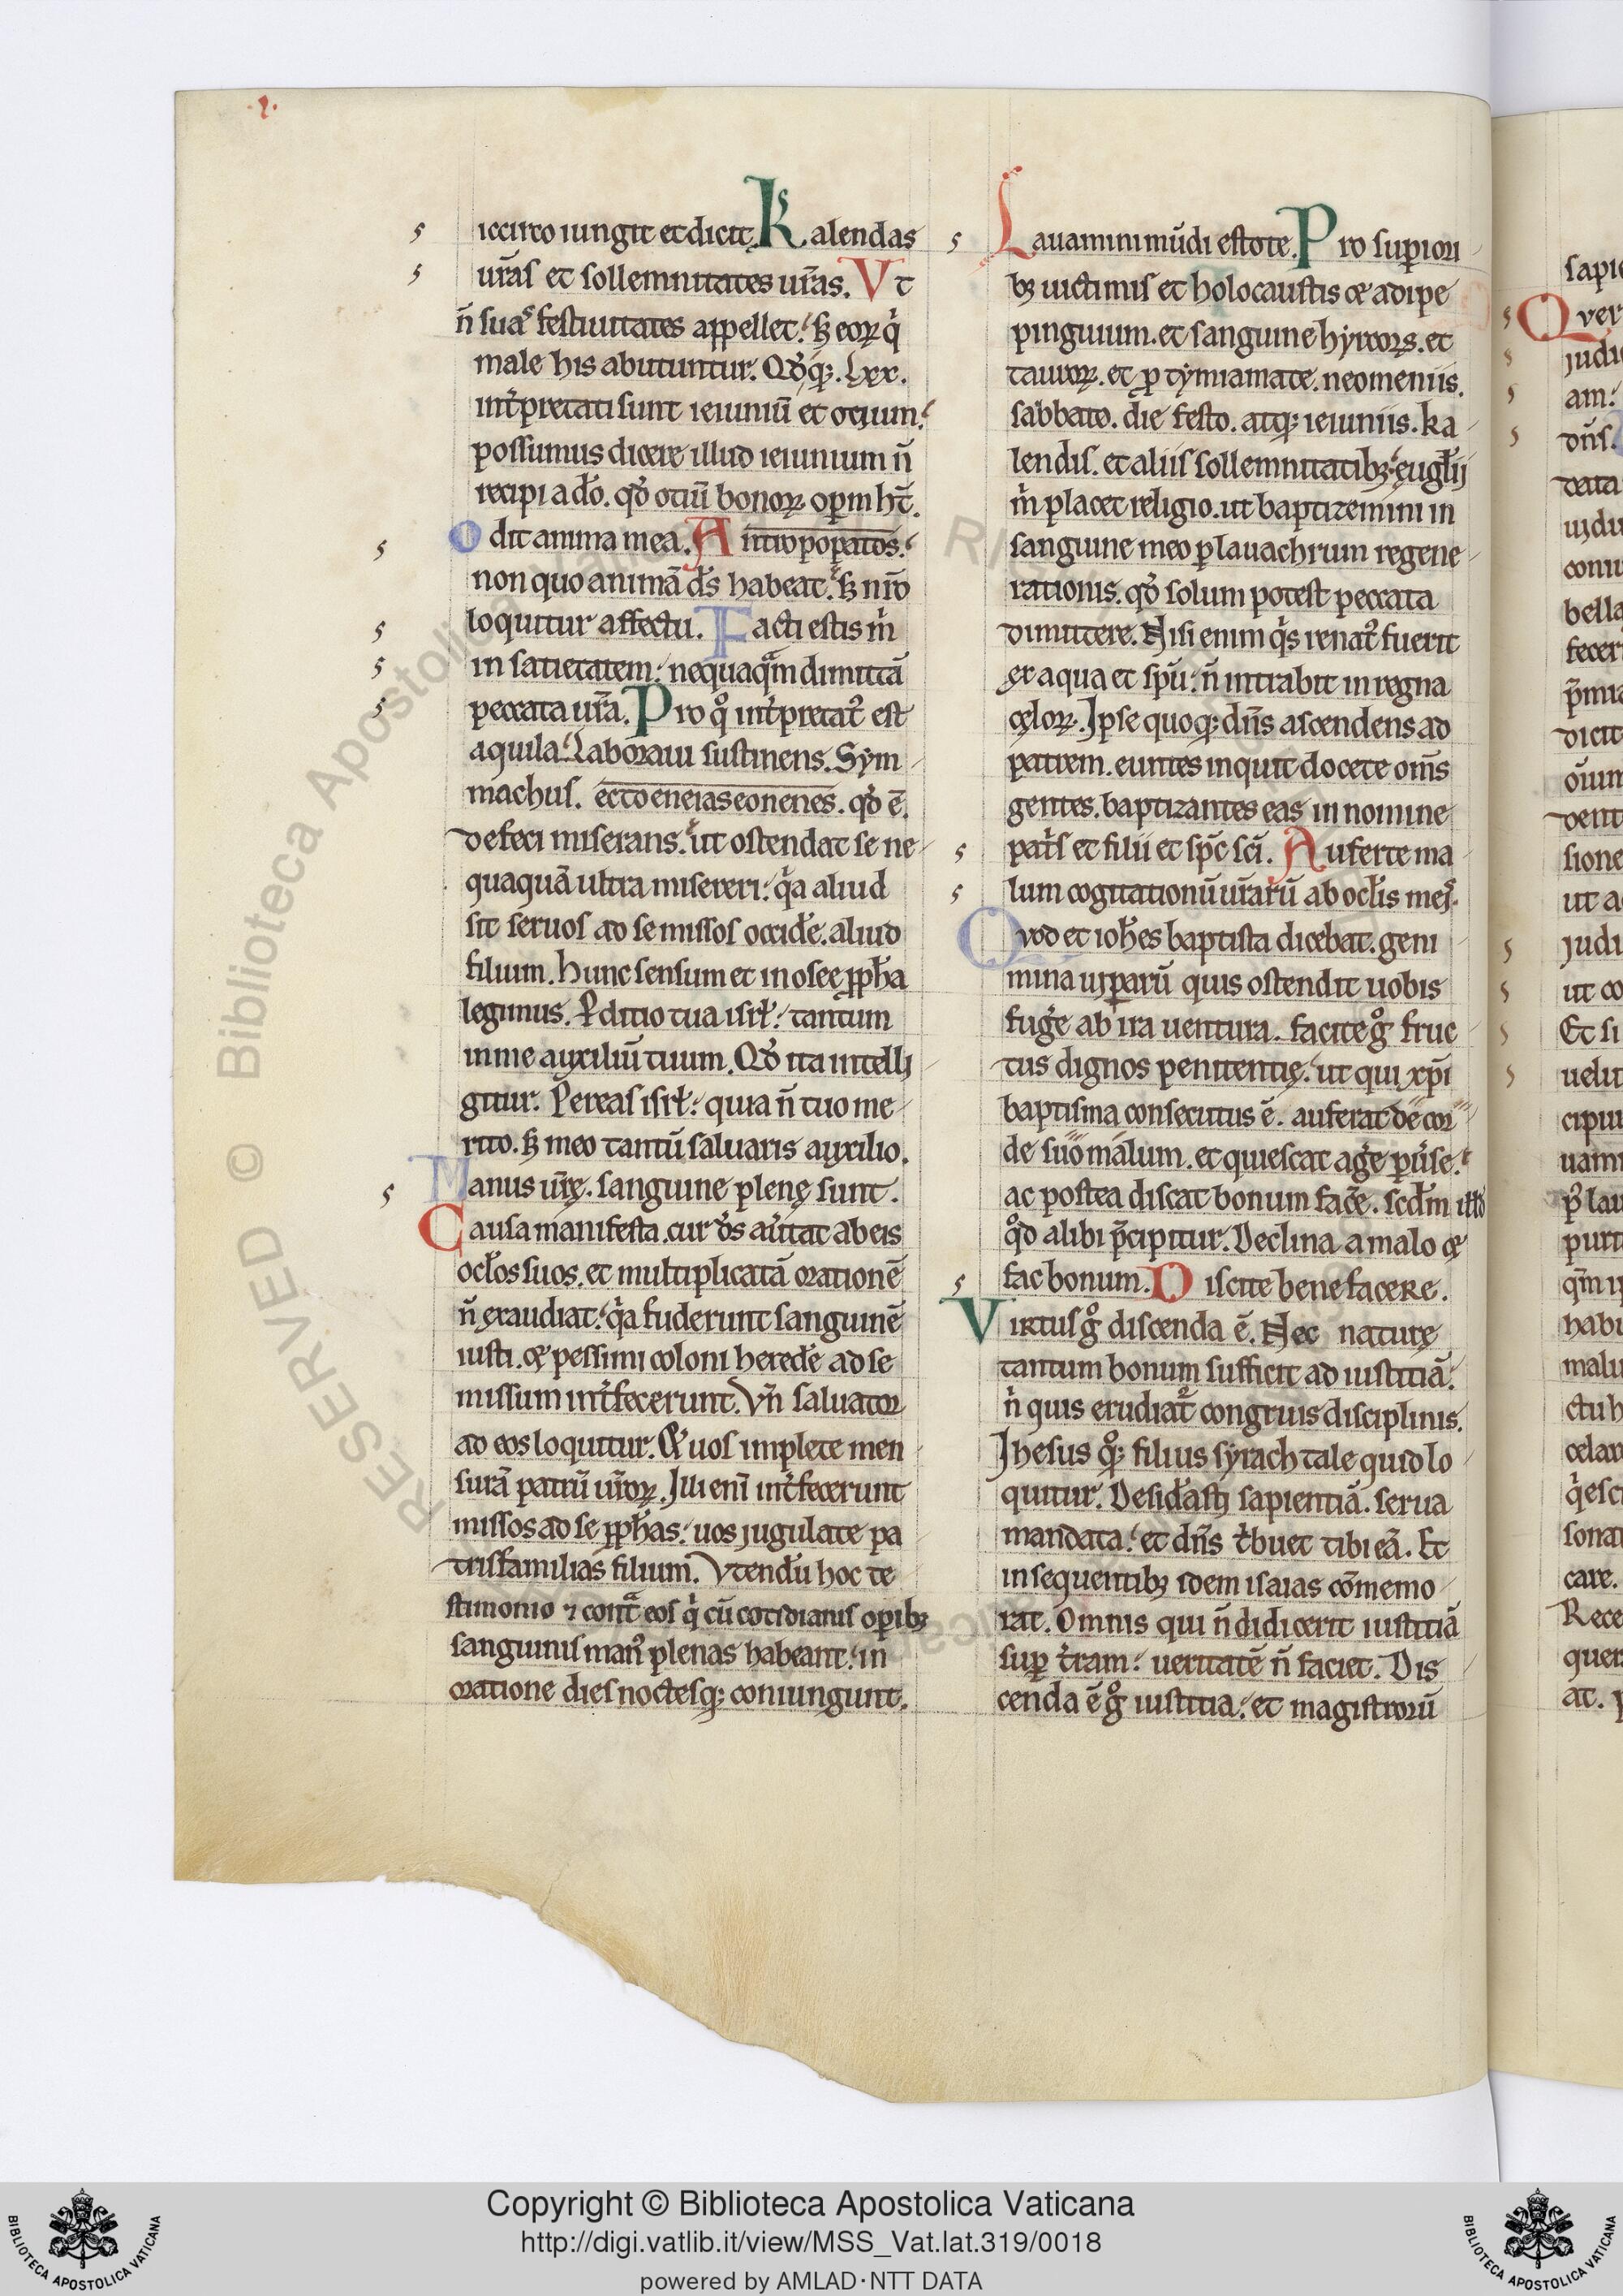 iccirco iungit et dicit. Kalendas
ur̄as et sollemnitates ur̄as. Vt
n̄ suas festiuitates appellet. sꝫ eoꝝ qͥ
male his abutuntur. Qđ qꝫ. Lxx.
int̾pretati sunt ieiuniū et otium.
possumus dicere illud ieiunium n̄
recipi a dō. qđ otiū bonoꝝ oꝑm ht̄.
Odit anima mea. A ntropopatos.
non quo animā ds̄ habeat. sꝫ nr̄o
loquitur affectu. Facti estis m̍
in satietatem. nequaqᷓm dimittā
peccata ur̄a. Pro qͦ int̾pretatꝰ est
aquila. Laboraui sustinens. Sym
machus. ectoeneiaseonenes. qđ ē.
defeci miserans. ut ostendat se ne
quaquā ultra misereri. qͥa aliud
sit seruos ad se missos occide̾. aliud
filium. Hunc sensum et in osee ꝓph̄a
legimus. Ꝑditio tua isrł. tantum
in me auxiliū tuum. Qđ ita intelli
gitur. Pereas isrł. quia n̄ tuo me
rito. sꝫ meo tantū saluaris auxilio.
Manus ur̄ę. sanguine plenę sunt.
Causa manifesta. cur ds̄ au̾tat ab eis
ocłos suos. et multiplicatā orationē
n̄ exaudiat. qͥa fuderunt sanguinē
iusti. & pessimi coloni herede̾ ad se
missum int̾fecerunt. Vn̄ saluator
ad eos loquitur. Et uos implete men
surā patrū ur̄oꝝ. Illi eni̅ int̾fecerunt
missos ad se ꝓph̄as. uos jugulate pa
trisfamilias filium. Vtendū hoc te
stimonio ⁊ contᷓ eos qͥ cū cotidianis oꝑibꝫ
sanguinis manꝰ plenas habeant. in
oratione dies noctesqꝫ coniungunt.
Lauamini mūdi estote. Pro suꝑiori
bꝫ uictimis et holocaustis & adipe
pinguium. et sanguine hyrcoꝝ. et
tauroꝝ. et ꝓ tymiamate. neomeniis.
sabbato. die festo. atqꝫ ieiuniis. ka
lendis. et aliis sollemnitatibꝫ. euglıı
m̍ placet religio. ut baptizemini in
sanguine meo ꝑ lauachrum regene
rationis. qđ solum potest peccata
dimittere. Nisi enim qͥs renatꝰ fuerit
ex aqua et spū. n̄ intrabit in regna
cęloꝝ. Ipse quoqꝫ dn̄s ascendens ad
patrem. euntes inquit docete om̄s
gentes. baptizantes eas in nomine
patͥs et filii et sp̄c sc̄i. Auferte ma
lum cogitationū ur̄arū ab ocłis meis.
Qvod et ioh̄es baptista dicebat. geni
mina uiꝑarū quis ostendit uobis
fuge̾ ab ira uentura. facite gͦ fruc
tus dignos penitentię. ut qui xp̄i
baptisma consecutus ē. auferat de cor
de suo malum. et quiescat age̾ ꝑu̾se.
ac postea discat bonum face̾. scdm illđ
qͦd alibi p̄cipitur. Declina a malo &
fac bonum. Discite benefacere.
Virtus gͦ discenda ē. Nec naturę
tantum bonum sufficit ad iustitiā.
n̍ quis erudiatᷓ congruis disciplinis.
Ihesus qͦꝫ filius syrach tale quid lo
quitur. Deside̾asti sapientiā. serua
mandata. et dn̄s tͥbuet tibi eā. Et
in sequentibꝫ idem isaias cōmemo
rat. Omnis qui n̄ didicerit iustitiā
suꝑ t̾ram. ueritatē n̄ faciet. Dis
cenda ē gͦ iustitia. et magistrorū
sapie
Qver
judi
am.
dn̄s.
bella
fecer
dicit
sione
ut a
judi
ut co
Et si
uelu
cipiu
habi
malu
ctu h
sona
care.
Rece
quer
at. p
RESERVED © Biblioteca Apostolica
Copyright © Biblioteca Apostolica Vaticana
http://digi.vatlib.it/view/MSS_Vat.lat.319/0018
powered by AMLAD·NTT DATA
BIBLIOTECA APOSTOLICA VATICANA
BIBLIOTECA APOSTOLICA VATICANA